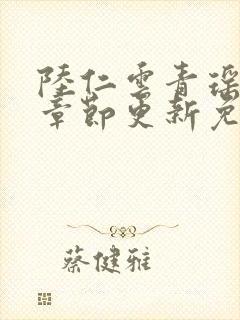 陸仁雲青瑶
章節更新免
蔡健雅